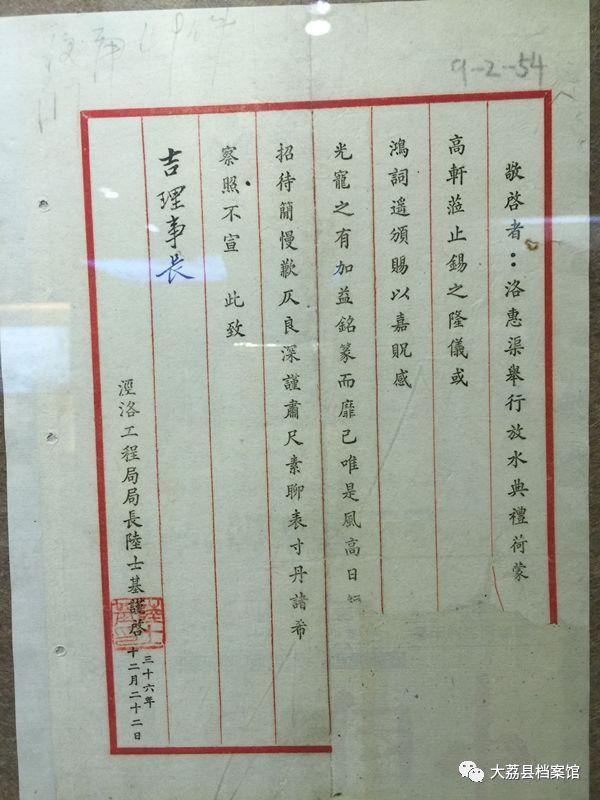 9-2-54
敬啓者：洛惠渠舉行放水典禮荷蒙
高軒蒞止錫之隆儀或
鴻詞遙頒賜以嘉貺感
光寵之有加益銘篆而靡已唯是風高日
招待簡慢歉仄良深謹肅尺素聊表寸丹諸希
察照不宣 此致
吉理事長
涇洛工程局局長陸士基謹啓
三十六年
十二月二十二日
大荔县档案馆